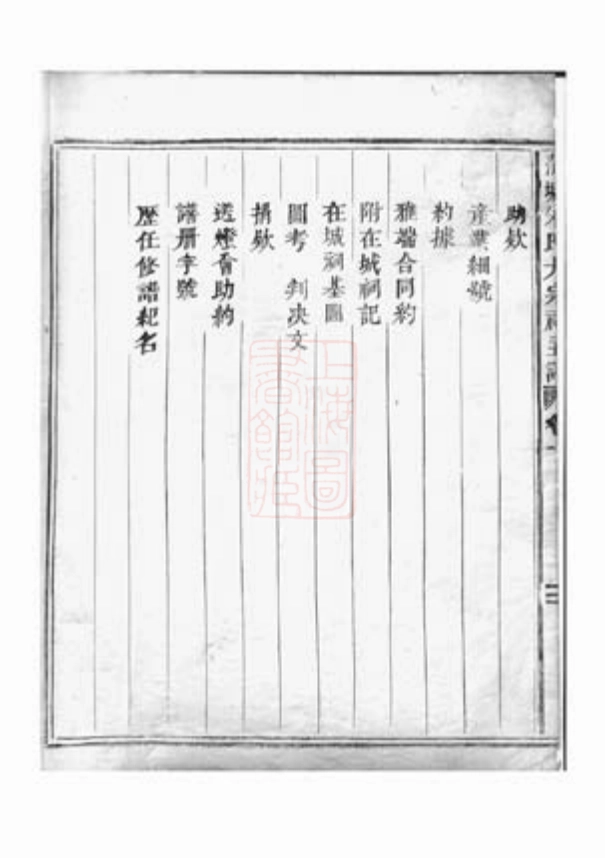 助欵
産業細號
約據
雅端合同約
附在城祠記
在城祠基圖
圖考 判决文
捐欵
送燈會助約
譜册字號
歷任修譜紀名
上海圖書館藏